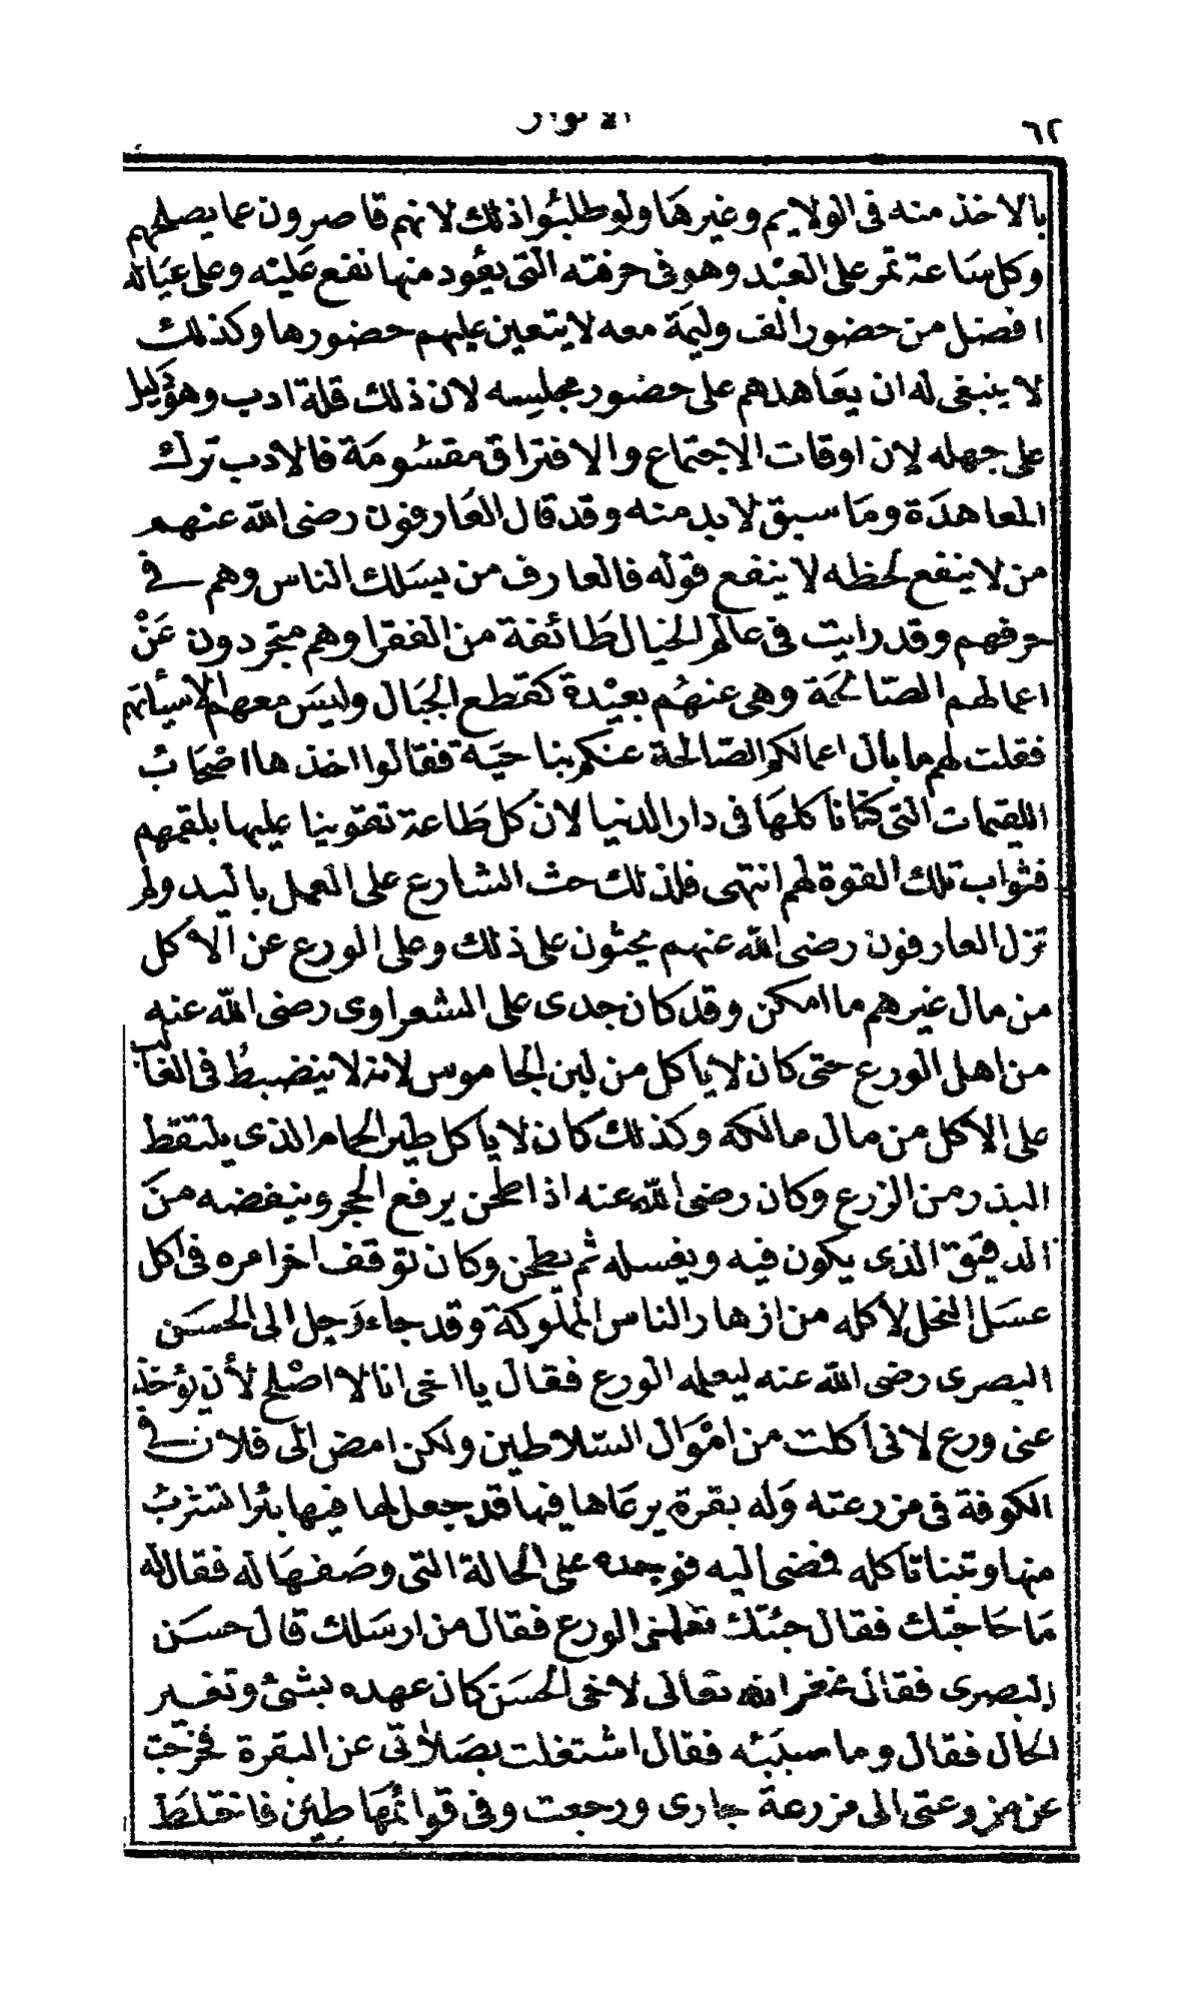 ٦٢
بالاخذ منه فى الولايم وغيرها ولو طلبوا ذلك لانهم قاصرون عما يصلحهم
وكل ساعة تمر على العبد وهو فى حرفته التى يعود منها نفع عليه وعلى عياله
افضل من حضور الف وليمة معه لا يتعين عليهم حضورها وكذلك
لا ينبغى له ان يعاهدهم على حضور مجلسه لان ذلك قلة ادب وهو دليل
على جهله لان اوقات الاجتماع والافتراق مقسومة فالادب ترك
المعاهدة وما سبق لا بد منه وقد قال العارفون رضى الله عنهم
من لا ينفع لحظه لا ينفع قوله فالعارف من يسلك الناس وهم فى
حرفهم وقد رايت فى عالم الخيال طائفة من الفقرا وهم متجردون عن
اعمالهم الصالحة وهى عنهم بعيدة كقطع الجبال وليس معهم الا سيأتهم
فقلت لهم ما بال اعمالكم الصالحة عنكم بناحية فقالوا اخذها اصحاب
اللقيمات التى كنا ناكلها فى دار الدنيا لان كل طاعة تقوينا عليها بلقمهم
فثواب تلك القوة لهم انتهى فلذلك حث الشارع على العمل باليد ولم
تزل العارفون رضى الله عنهم يحثون على ذلك وعلى الورع عن الاكل
من مال غيرهم ما امكن وقد كان جدى على الشعراوى رضى الله عنه
من اهل الورع حتى كان لا ياكل من لبن الجاموس لانه لا ينضبط فى الغالب
على الاكل من مال مالكه وكذلك كان لا ياكل طير الحمام الذى يلتقط
البذر من الزرع وكان رضى الله عنه اذا طحن يرفع الحجر وينفضه من
الدقيق الذى يكون فيه ويغسله ثم يطحن وكان توقف اخر امره فى اكل
عسل النحل لاكله من ازهار الناس المملوكة وقد جاء رجل الى الحسن
البصرى رضى الله عنه ليعلمه الورع فقال يا اخى انا لا اصلح لأن يؤخذ
عنى ورع لانى اكلت من اموال السلاطين ولكن امض الى فلان فى
الكوفة فى مزرعته وله بقرة يرعاها فيها قد جعل لها فيها بئرا تشرب
منها وتبنا تاكله فمضى اليه فوجده على الحالة التى وصفها له فقال له
ما حاجتك فقال جئتك تعلمنى الورع فقال من ارسلك قال حسن
البصرى فقال غفر الله تعالى لاخى الحسن كان عهده بشئ وتغير
الحال فقال وما سببه فقال اشتغلت بصلاتى عن البقرة فخرجت
عن مزروعتى الى مزرعة جارى ورجعت وفى قوائمها طين فاختلط